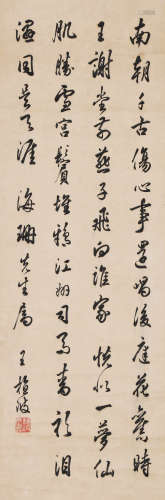 南朝千古傷心事還唱後庭花舊時
王謝堂前燕子飛向誰家恍似一夢仙
肌勝雪宮鬢堆鴉江州司馬青衫淚
濕同是天涯 海珊先生屬 王植波